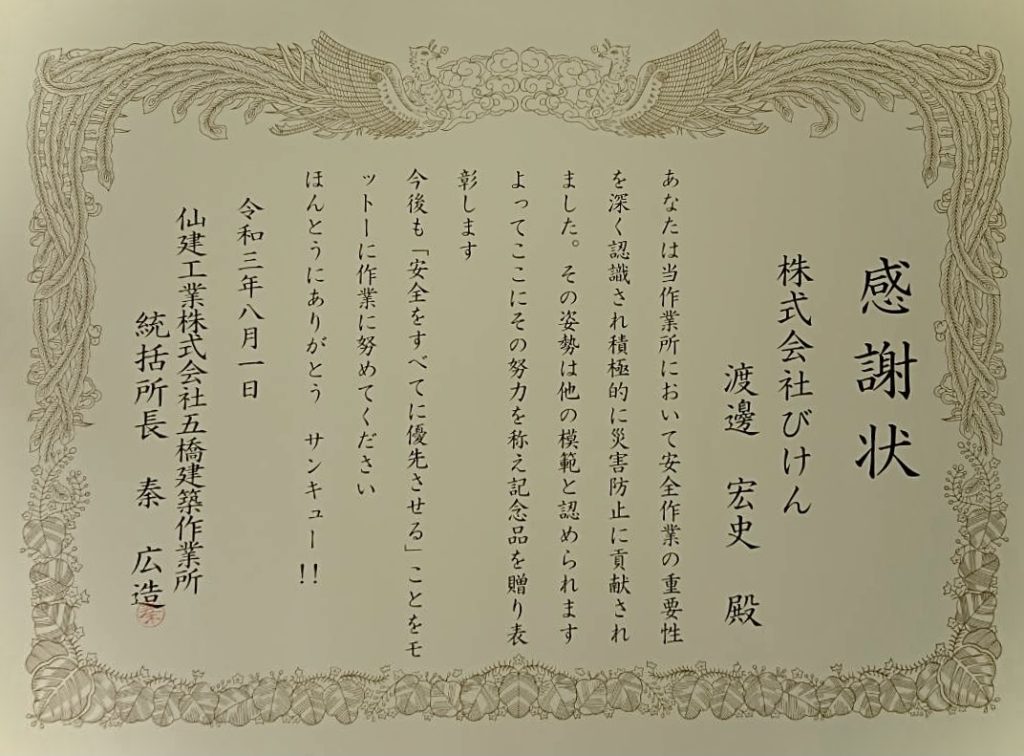 感謝状
株式会社びけん
渡邊 宏史 殿
あなたは当作業所において安全作業の重要性
を深く認識され積極的に災害防止に貢献され
ました。その姿勢は他の模範と認められます
よってここにその努力を称え記念品を贈り表
彰します
今後も「安全をすべてに優先させる」ことをモ
ットーに作業に努めてください
ほんとうにありがとう サンキュー!!
令和三年八月一日
仙建工業株式会社五橋建築作業所
統括所長 秦 広造